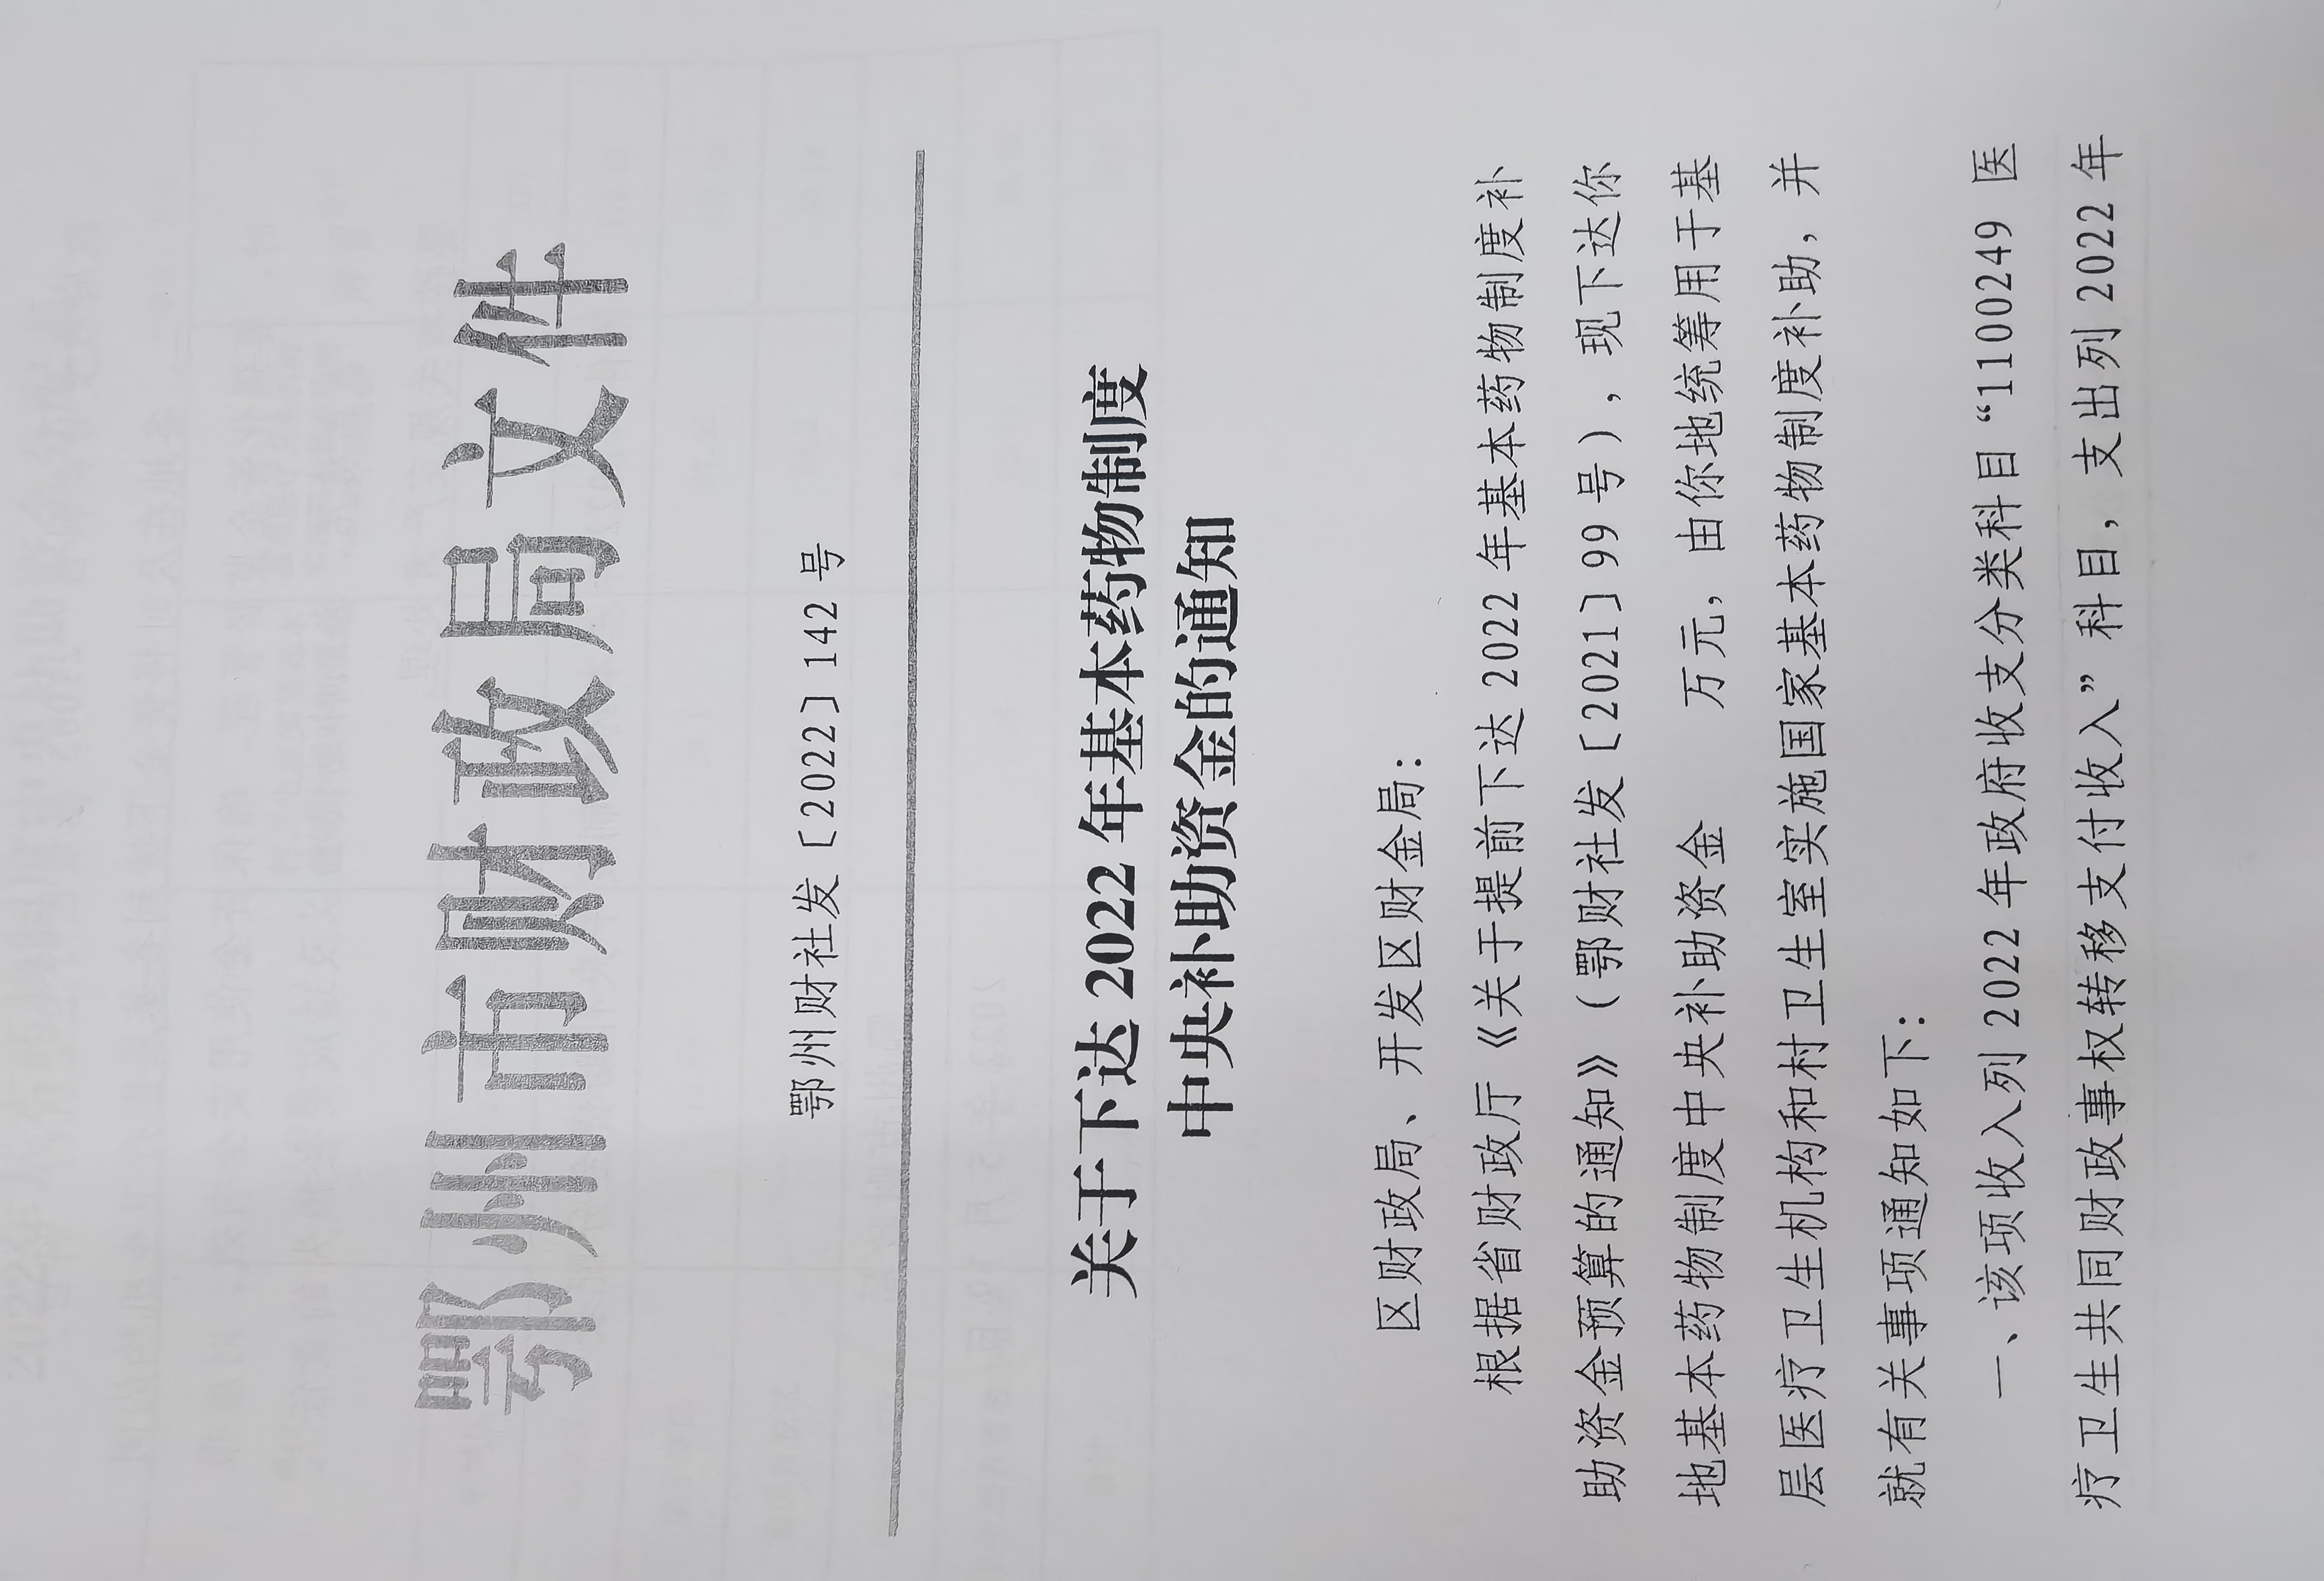 鄂州市财政局文件
鄂州财社发〔2022〕142号
关于下达2022年基本药物制度
中央补助资金的通知
区财政局、开发区财金局：
根据省财政厅《关于提前下达2022年基本药物制度补
助资金预算的通知》（鄂财社发〔2021〕99号），现下达你
地基本药物制度中央补助资金　　万元，由你地统筹用于基
层医疗卫生机构和村卫生室实施国家基本药物制度补助，并
就有关事项通知如下：
一、该项收入列2022年政府收支分类科目“1100249 医
疗卫生共同财政事权转移支付收入”科目，支出列2022年